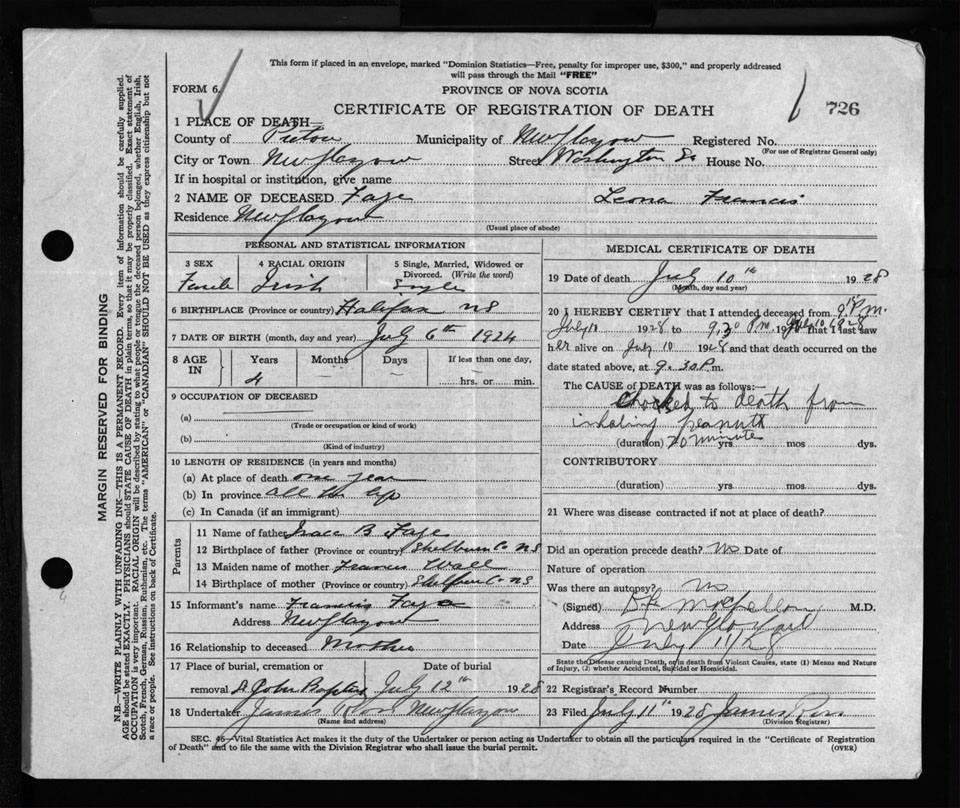 This form if placed in an envelope, marked "Dominion Statistics—Free, penalty for improper use, $300," and properly addressed
will pass through the Mail "FREE"
FORM 6.
PROVINCE OF NOVA SCOTIA
726
CERTIFICATE OF REGISTRATION OF DEATH
1 PLACE OF DEATH—
County of Pictou Municipality of New Glasgow Registered No.
(For use of Registrar General only)
City or Town New Glasgow Street Washington St House No.
If in hospital or institution, give name
2 NAME OF DECEASED Faye Leona Francis
Residence New Glasgow
(Usual place of abode)
PERSONAL AND STATISTICAL INFORMATION
3 SEX 4 RACIAL ORIGIN 5 Single, Married, Widowed or
Divorced. (Write the word)
Female Irish Single
6 BIRTHPLACE (Province or country) Halifax NS
7 DATE OF BIRTH (month, day and year) July 6th 1924
8 AGE IN Years Months Days If less than one day,
4 — — hrs. or min.
9 OCCUPATION OF DECEASED
(a)
(Trade or occupation or kind of work)
(b)
(Kind of industry)
10 LENGTH OF RESIDENCE (in years and months)
(a) At place of death one year
(b) In province all the life
(c) In Canada (if an immigrant)
Parents
11 Name of father B Faye
12 Birthplace of father (Province or country) Shelburne Co NS
13 Maiden name of mother Francis Wall
14 Birthplace of mother (Province or country) Shelburne Co NS
15 Informant's name Francis Faye
Address New Glasgow
16 Relationship to deceased Mother
17 Place of burial, cremation or Date of burial
removal St John Baptist July 12th 1928
18 Undertaker James New Glasgow
(Name and address)
MEDICAL CERTIFICATE OF DEATH
19 Date of death July 10th 1928
(Month, day and year)
20 I HEREBY CERTIFY that I attended deceased from 9 P.M.
July 10 1928 to 9.30 P.M. July 10 1928 that I last saw
her alive on July 10 1928 and that death occurred on the
date stated above, at 9.30 P.m.
The CAUSE of DEATH was as follows:—
Chocked to death from
inhaling peanut
(duration) 20 minutes yrs. mos dys.
CONTRIBUTORY
(duration) yrs. mos. dys.
21 Where was disease contracted if not at place of death?
Did an operation precede death? No Date of
Nature of operation
Was there an autopsy? No
(Signed) M.D.
Address New Glasgow
Date July 11/28
State the Disease causing Death, or in death from Violent Causes, state (1) Means and Nature
of Injury, (2) whether Accidental, Suicidal or Homicidal.
22 Registrar's Record Number
23 Filed July 11th 1928 James
(Division Registrar)
SEC. 46—Vital Statistics Act makes it the duty of the Undertaker or person acting as Undertaker to obtain all the particulars required in the "Certificate of Registration
of Death" and to file the same with the Division Registrar who shall issue the burial permit.
(OVER)
MARGIN RESERVED FOR BINDING
N.B.—WRITE PLAINLY WITH UNFADING INK—THIS IS A PERMANENT RECORD. Every item of information should be carefully supplied.
AGE should be stated EXACTLY. PHYSICIANS should STATE CAUSE OF DEATH in plain terms, so that it may be properly classified. Exact statement of
OCCUPATION is very important. RACIAL ORIGIN will be described by stating to what people or tongue the deceased person belonged, whether English, Irish,
Scotch, French, German, Russian, Ruthenian, etc. The terms "AMERICAN" or "CANADIAN" SHOULD NOT BE USED as they express citizenship but not
a race or people. See instructions on back of Certificate.